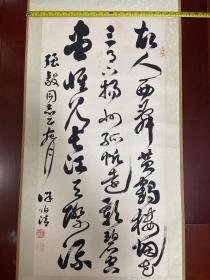 故人西辞黄鶴楼烟花
三月下揚州孤帆远影碧空
尽唯见长江天際流
同志